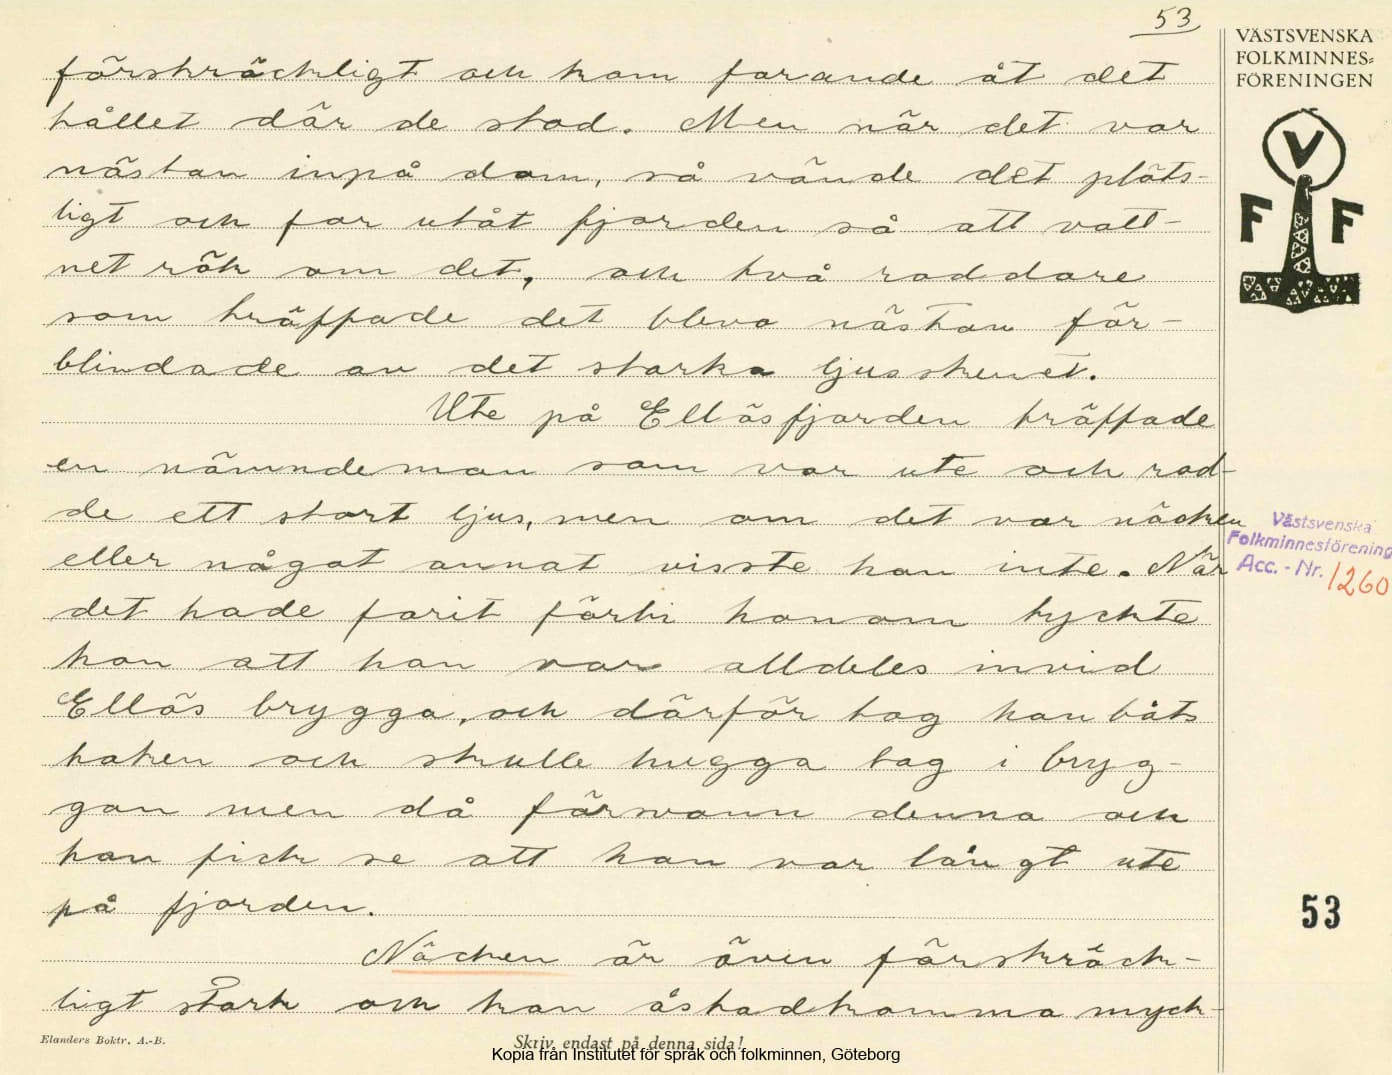 53
förskräckligt och kom farande åt det
hållet där de stod. Men när det var
nästan inpå dom, så vände det plöts-
ligt och for utåt fjorden så att vatt-
net rök om det, och två roddare
som träffade det blevo nästan för-
blindade av det starka ljusskenet.
Ute på Ellösfjorden träffade
en nämndeman som var ute och rod-
de ett stort ljus, men om det var näcken
eller något annat visste han inte. När
det hade farit förbi honom tyckte
han att han var alldeles invid
Ellös brygga, och därför tog han båts
haken och skulle hugga tag i bryg-
gan men då försvann denna och
han fick se att han var långt ute
på fjorden.
Näcken är även förskräck-
ligt stark och kan åstadkomma myck-
Elanders Boktr. A.-B.
Skriv endast på denna sida!
Kopia från Institutet för språk och folkminnen, Göteborg
VÄSTSVENSKA
FOLKMINNES=
FÖRENINGEN
V
F F
Västsvenska
Folkminnesförening
Acc. - Nr. 1260
53